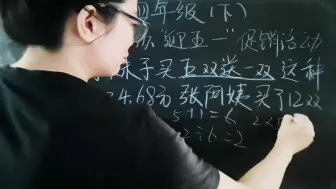 四年级(下)
"迎五一"促销活动
袜子买五双送一双这种
24.68元 张阿姨买了12双
5+1=6
12÷6=2
2×